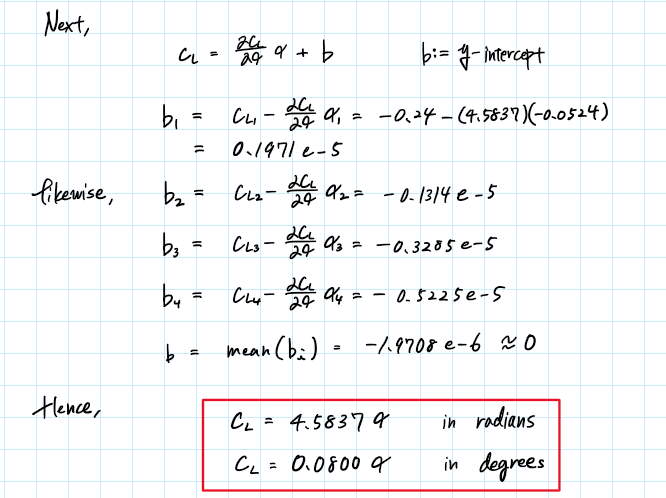 Next,
C_L = ∂C_L/∂α α + b    b := y-intercept
b₁ = C_L1 − ∂C_L/∂α α₁ = −0.24 − (4.5837)(−0.0524)
= 0.1971 e-5
likewise, b₂ = C_L2 − ∂C_L/∂α α₂ = −0.1314 e-5
b₃ = C_L3 − ∂C_L/∂α α₃ = −0.3285 e-5
b₄ = C_L4 − ∂C_L/∂α α₄ = −0.5225 e-5
b = mean(bᵢ) = −1.9708 e-6 ≈ 0
Hence,
C_L = 4.5837 α    in radians
C_L = 0.0800 α    in degrees